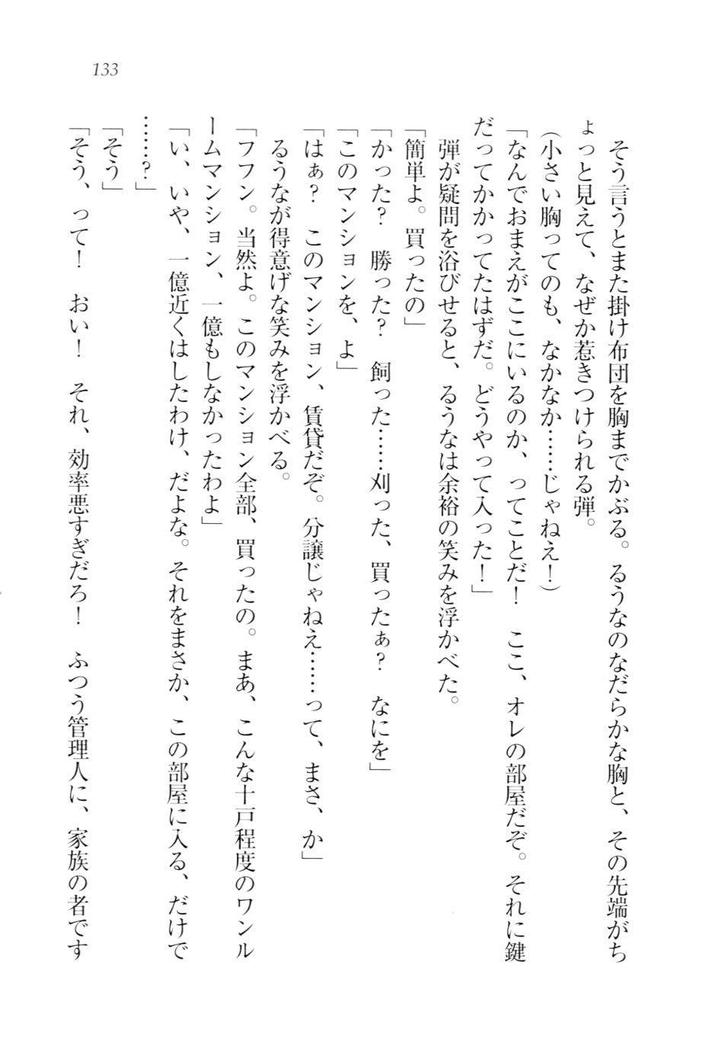 133
そう言うとまた掛け布団を胸までかぶる。るうなのなだらかな胸と、その先端がち
ょっと見えて、なぜか惹きつけられる弾。
(小さい胸ってのも、なかなか……じゃねえ!)
「なんでおまえがここにいるのか、ってことだ! ここ、オレの部屋だぞ。それに鍵
だってかかってたはずだ。どうやって入った!」
弾が疑問を浴びせると、るうなは余裕の笑みを浮かべた。
「簡単よ。買ったの」
「かった? 勝った? 飼った……刈った、買ったぁ? なにを」
「このマンションを、よ」
「はぁ? このマンション、賃貸だぞ。分譲じゃねえ……って、まさ、か」
るうなが得意げな笑みを浮かべる。
「フフン。当然よ。このマンション全部、買ったの。まあ、こんな十戸程度のワンル
ームマンション、一億もしなかったわよ」
「い、いや、一億近くはしたわけ、だよな。それをまさか、この部屋に入る、だけで
……?」
「そう」
「そう、って! おい! それ、効率悪すぎだろ! ふつう管理人に、家族の者です